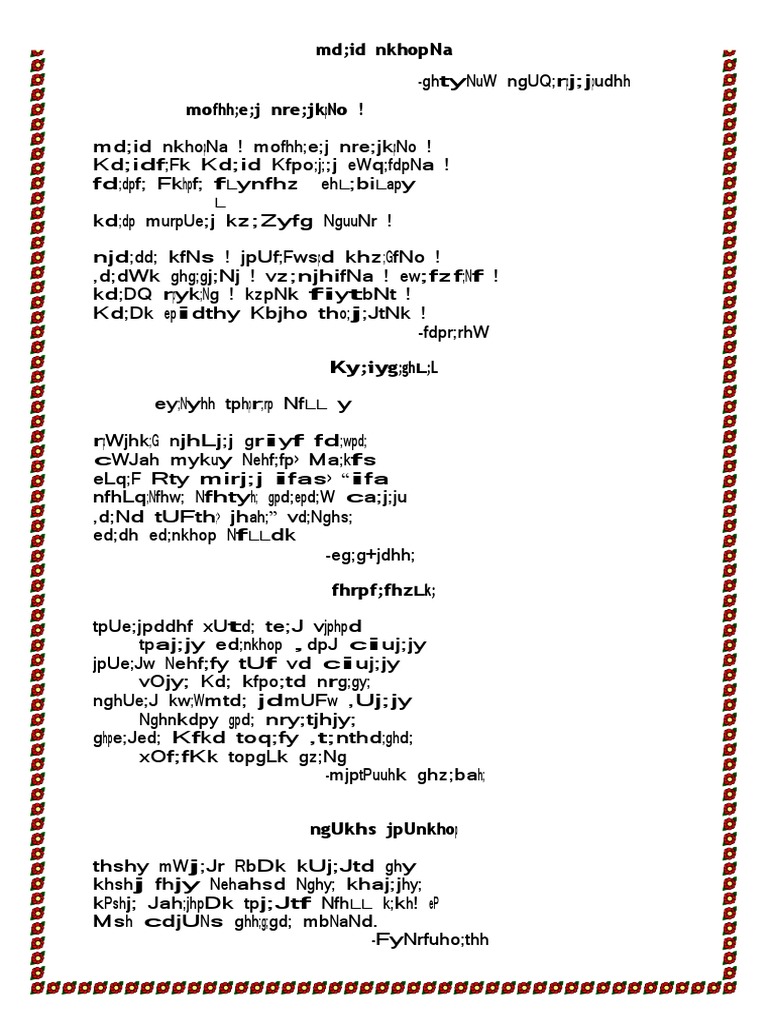 md;id nkhopNa
-ghtyNuW ngUQ;rpj;j;udhh
mofhh;e;j nre;jkpNo !
md;id nkhopNa ! mofhh;e;j nre;jkpNo !
Kd;idf;Fk Kd;id Kfpo;j;;j eWq;fdpNa !
fd;dpf; Fkhpf; f∟ynfhz ehL;biLapy
∟
kd;dp murpUe;j kz;Zyfg NguuNr !
njd;dd; kfNs ! jpUf;Fwspd khz;GfNo !
,d;dWk ghg;gj;Nj ! vz;njhifNa ! ew;fzf;Nf !
kd;DQ rpyk;Ng ! kzpNk fiytbNt !
Kd;Dk epidthy Kbjho tho;j;JtNk !
-fdpr;rhW
Ky;iyg;ghL;L
ey;Nyhh tphpr;rp Nf∟∟ y
rpWjhk;G njhLj;j griyf fd;wpd;
cWJah mykuy Nehf;fp> Ma;kfs
eLq;F Rty mirj;j ifas> “ifa
nfhLq;Nfhw; Nfhtyh; gpd;epd;W ca;j;ju
,d;Nd tUFth> jhah;” vd;Nghs;
ed;dh ed;nkhop Nf∟∟dk
-eg;g+jdhh;
fhrpf;fhzLk;
tpUe;jpddhf xUtd; te;J vjphpd
tpaj;jy ed;nkhop ,dpJ ciuj;jy
jpUe;Jw Nehf;fy tUf vd ciuj;jy
vOjy; Kd; kfpo;td nrg;gy;
nghUe;J kw;Wmtd; jdmUFw ,Uj;jy
Nghnkdpy gpd; nry;tjhjy;
ghpe;Jed; Kfkd toq;fy ,t;nthd;ghd;
xOf;fKk topgLk gz;Ng
-mjptPuuhk ghz;bah;
ngUkhs jpUnkhop
thshy mWj;Jr RbDk kUj;Jtd ghy
khshj fhjy Nehahsd Nghy; khaj;jhy;
kPshj; Jah;jhpDk tpj;Jtf Nfh∟∟ k;kh! eP
Msh cdjUNs ghh;g;gd; mbNaNd.
-FyNrfuho;thh